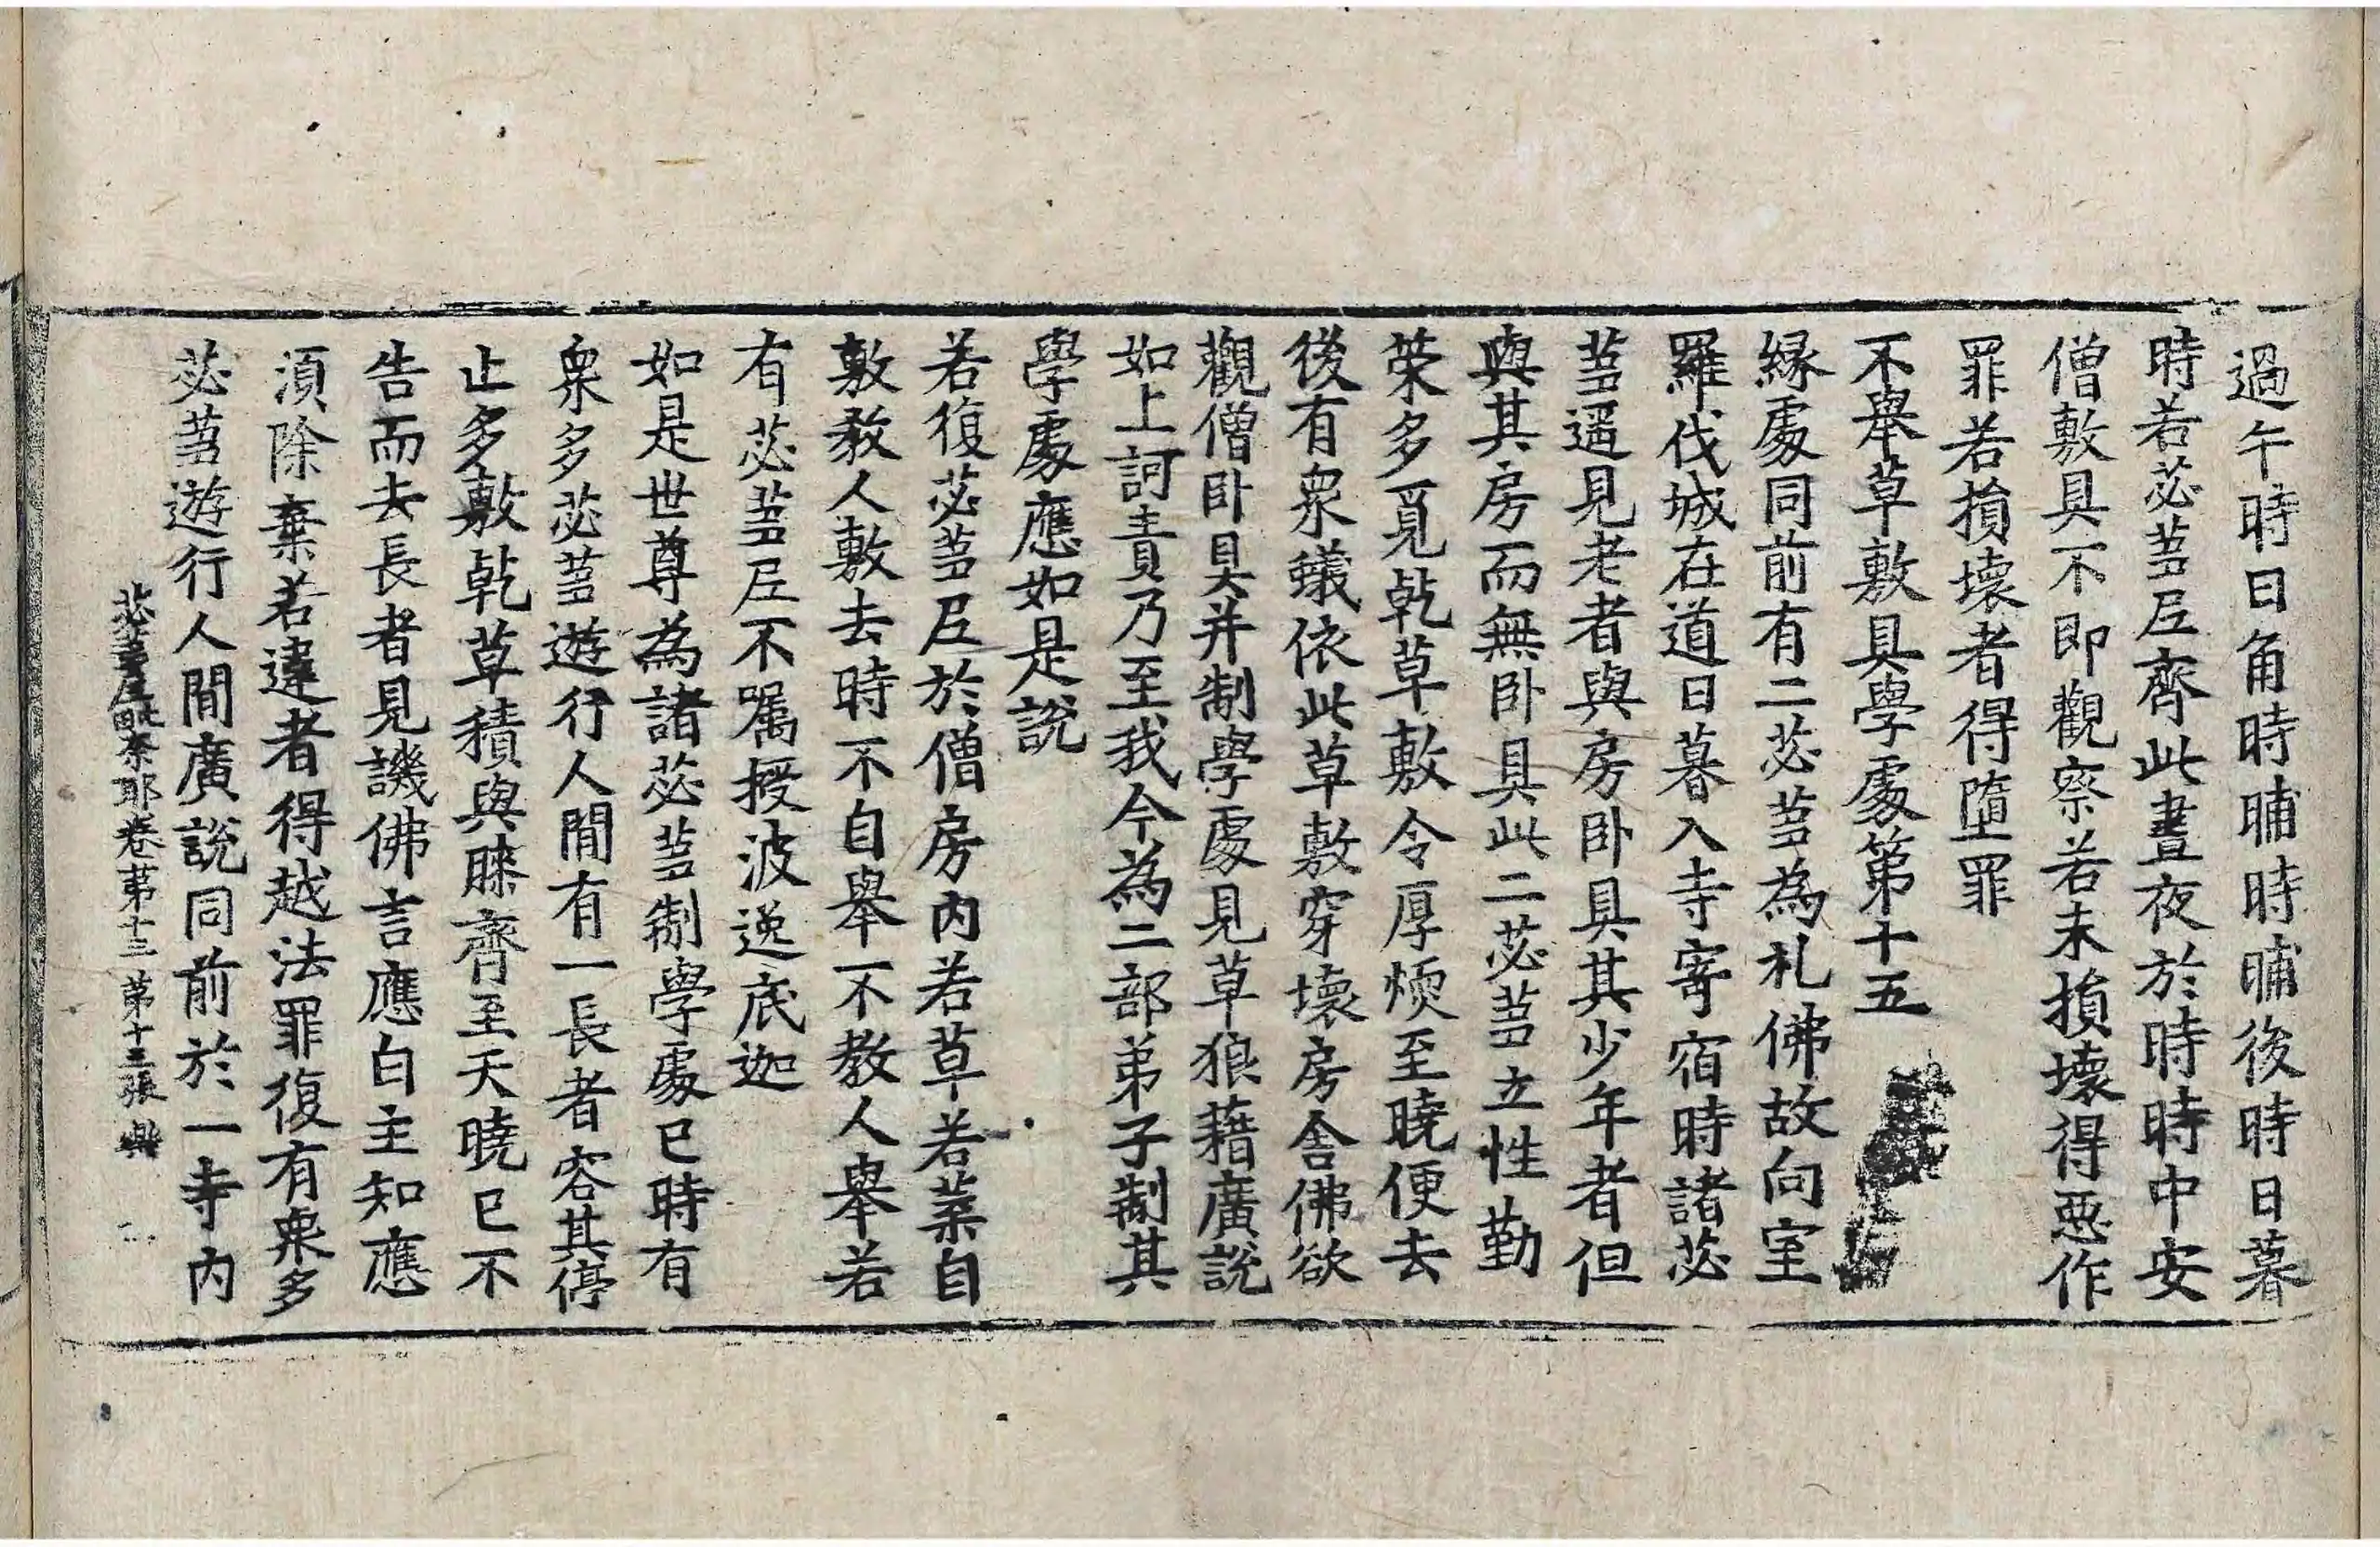 過午時日角時晡時晡後時日暮
時若苾蒭尼齊此晝夜於時時中安
僧敷具不即觀察若未損壞得惡作
罪若損壞者得墮罪
不舉草敷具學處第十五
緣處同前有二苾蒭為礼佛故向室
羅伐城在道日暮入寺寄宿時諸苾
蒭遥見老者與房卧具其少年者但
與其房而無卧具此二苾蒭立性勤
榮多覓乹草敷令厚煗至曉便去
後有衆蟻依此草敷穿壞房舍佛欲
觀僧卧具并制學處見草狼藉廣說
如上訶責乃至我今為二部弟子制其
學處應如是說
若復苾蒭尼於僧房內若草若葉自
敷教人敷去時不自舉不教人舉若
有苾蒭尼不囑授波逸底迦
如是世尊為諸苾蒭制學處已時有
衆多苾蒭遊行人間有一長者容其停
止多敷乹草積與牀齊至天曉已不
告而去長者見譏佛言應白主知應
須除棄若違者得越法罪復有衆多
苾蒭遊行人間廣說同前於一寺內
苾蒭尼毗奈耶卷第十三 第十三張 興